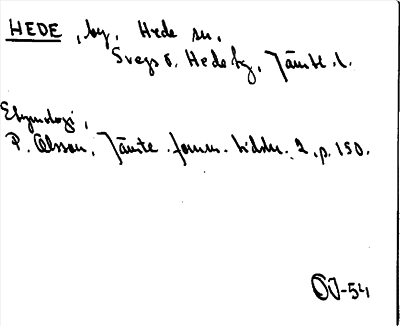 HEDE, by. Hede sn.
Svegs o. Hede tg, Jämtl. l.
Etymologi,
P. Olsson, Jämte. fornm. tidskr. 2, p. 150.
OJ-54